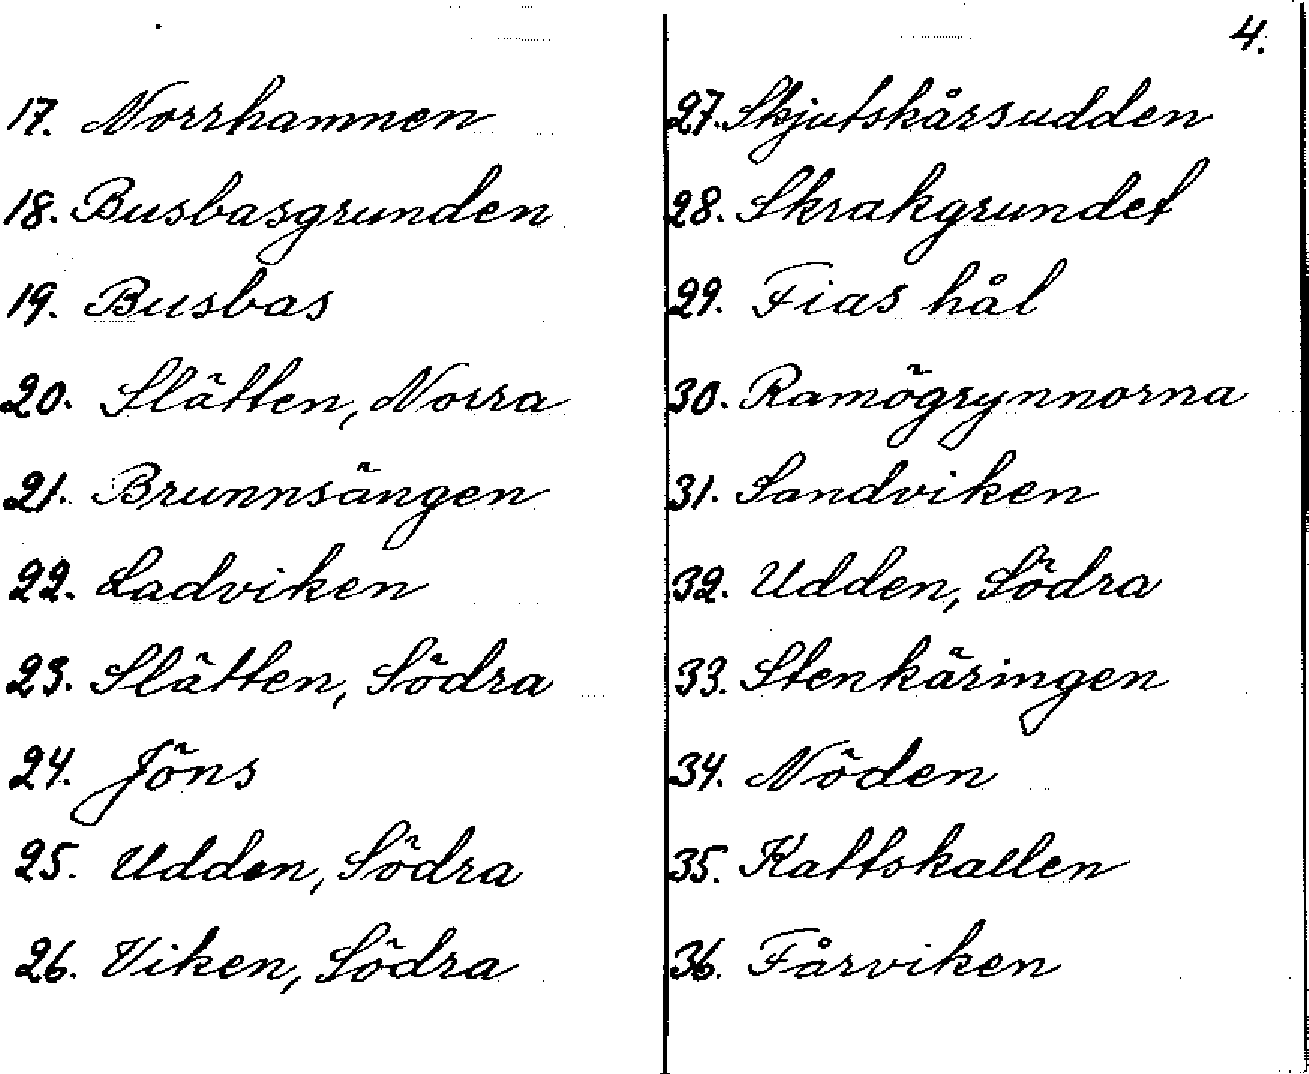 4.
17. Norrhamnen
18. Busbasgrunden
19. Busbas
20. Slätten, Norra
21. Brunnsängen
22. Ladviken
23. Slätten, Södra
24. Jöns
25. Udden, Södra
26. Viken, Södra
27. Skjutskårsudden
28. Skrakgrundet
29. Fias hål
30. Ramögrynnorna
31. Sandviken
32. Udden, Södra
33. Stenkäringen
34. Nöden
35. Kattskallen
36. Fårviken